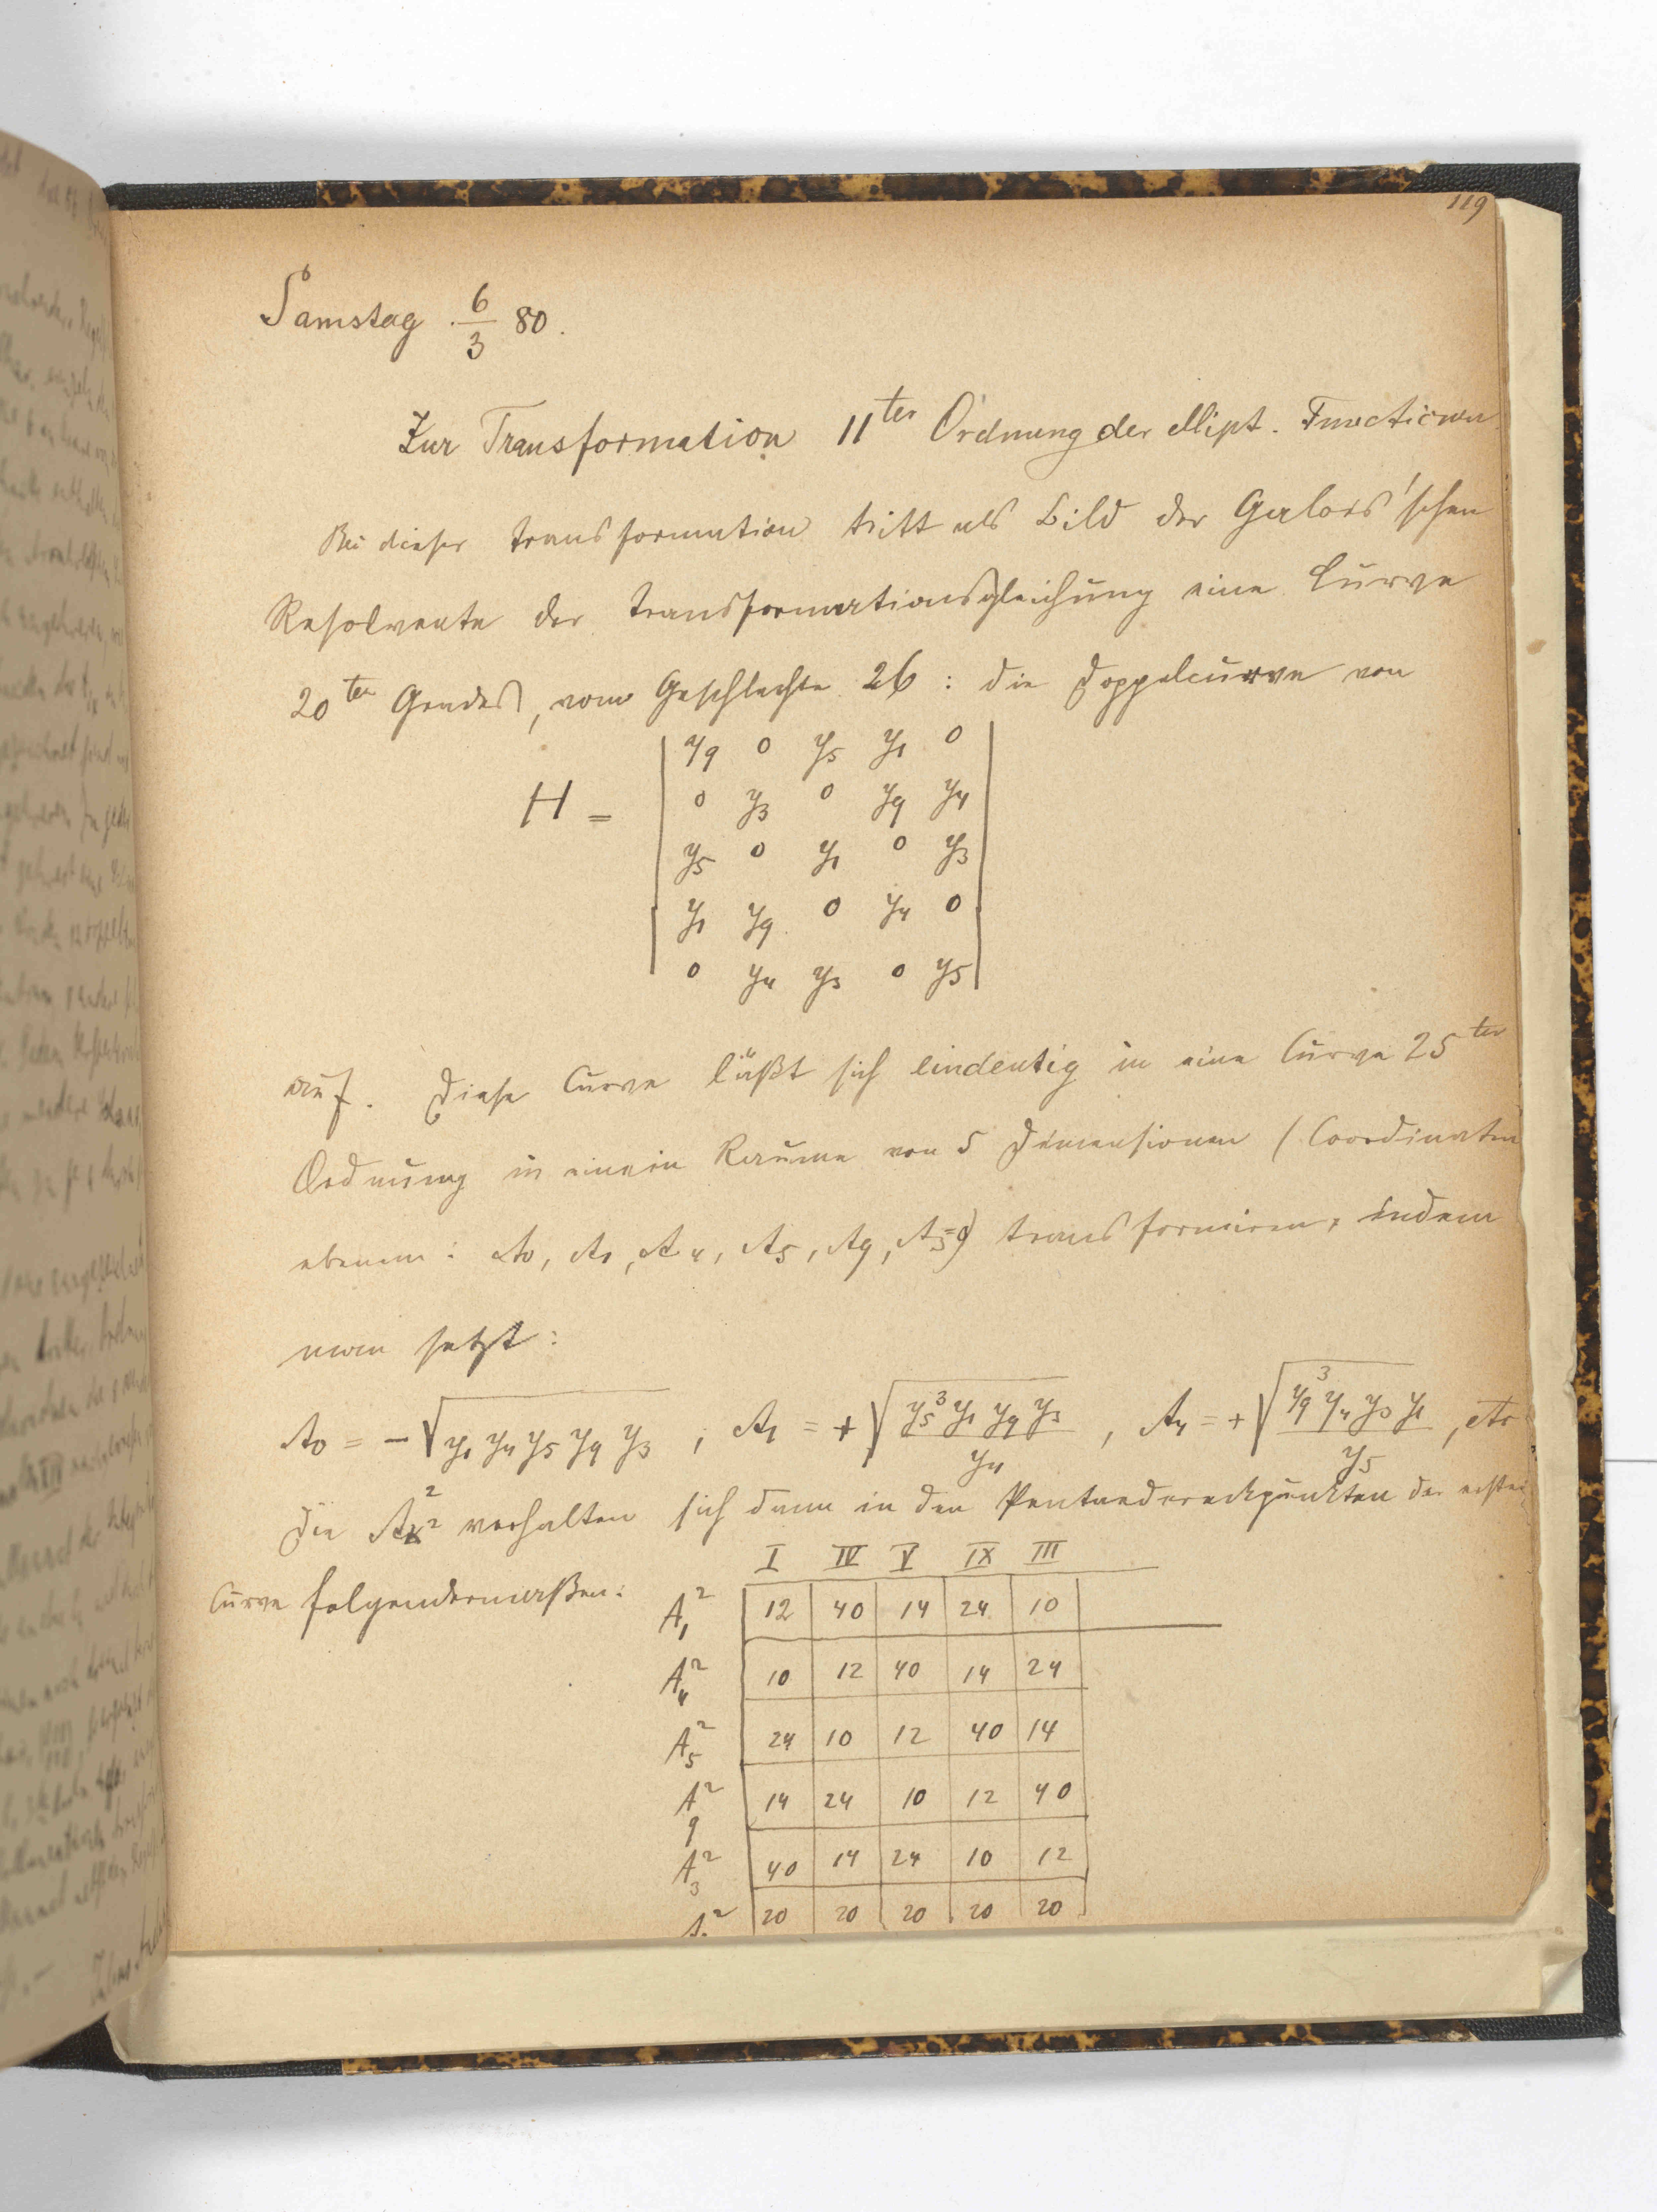 119
Samstag 6/3 80.
Zur Transformation 11ter Ordnung der ellipt. Functionen
Bei dieser Transformation tritt als Bild der Galois'schen
Resolvente der Transformationsgleichung eine Curve
20ten Grades, vom Geschlechte 26: die Doppelcurve von
H = | y9 0 y5 y1 0 |
| 0 y3 0 y9 y4 |
| y5 0 y1 0 y3 |
| y1 y9 0 y4 0 |
| 0 y4 y3 0 y5 |
auf. Diese Curve läßt sich eindeutig in eine Curve 25ter
Ordnung in einem Raume von 5 Dimensionen (Coordinaten
ebenen: A0, A1, A4, A5, A9, A3=0) transformiren, indem
man setzt:
A0 = −√(y1 y4 y5 y9 y3); A1 = +√(y5³ y1 y9 y3 / y4), A4 = +√(y9³ y4 y3 y1 / y5), etc
Die A² verhalten sich dann in den Pentaedereckpunkten der ersten
I IV V IX III
Curve folgendermaßen: A1² 12 40 14 24 10
A4² 10 12 40 14 24
A5² 24 10 12 40 14
A9² 14 24 10 12 40
A3² 40 14 24 10 12
A² 20 20 20 20 20